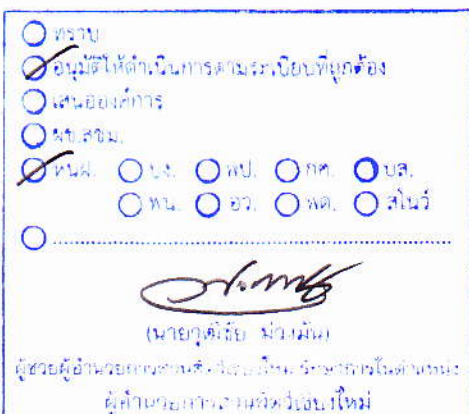 ทราบ
อนุมัติให้ดำเนินการตามระเบียบที่ถูกต้อง
เสนอองค์การ
ผช.สชม.
หนฝ. บง. พป. กศ. บส.
พน. อว. พด. สโนว์
(นายวุฒิชัย ม่วงมัน)
ผู้ช่วยผู้อำนวยการสวนสัตว์เชียงใหม่ รักษาการในตำแหน่ง
ผู้อำนวยการสวนสัตว์เชียงใหม่